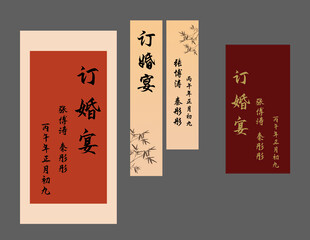 订婚宴
张傅涛 秦彤彤
丙午年正月初九
订婚宴
张傅涛 秦彤彤
丙午年正月初九
订婚宴
张傅涛 秦彤彤
丙午年正月初九